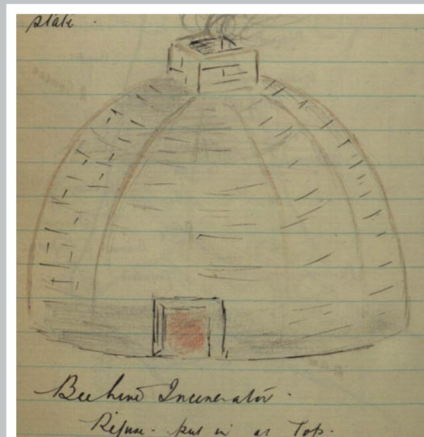 plate.
Beehive Incinerator.
Refuse put in at Top.